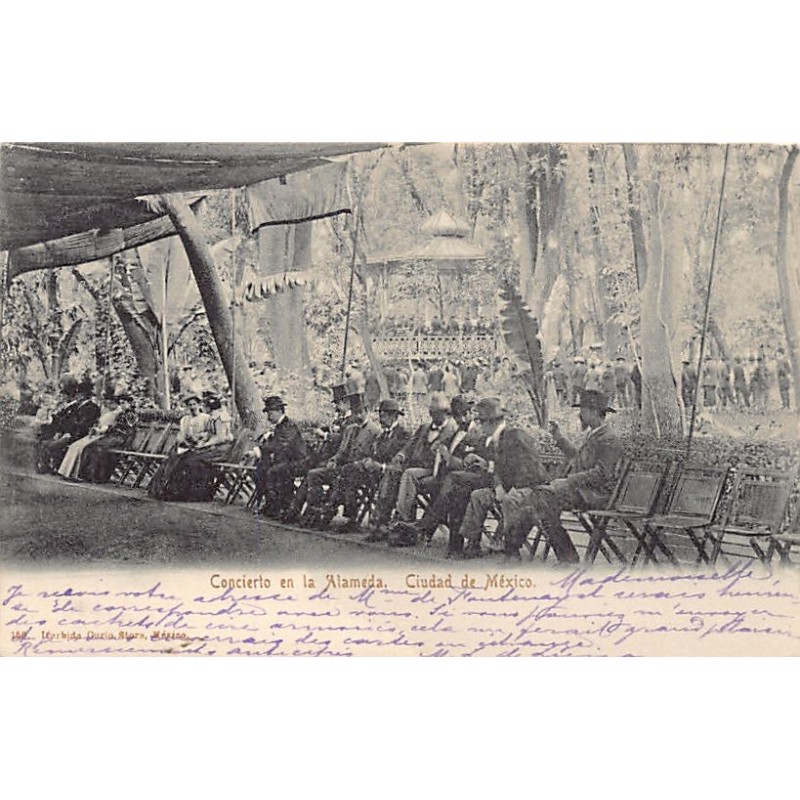 Concierto en la Alameda. Ciudad de México.
Mademoiselle
Je reçois votre adresse de Mme de Fontenay et serais heureuse
de correspondre avec vous. Si vous pouvez m'envoyer
des cachets de cire armoriés cela me ferait grand plaisir
150. Iturbide Curio Store, México.
je vous enverrais des cartes en échange
Remerciements anticipés